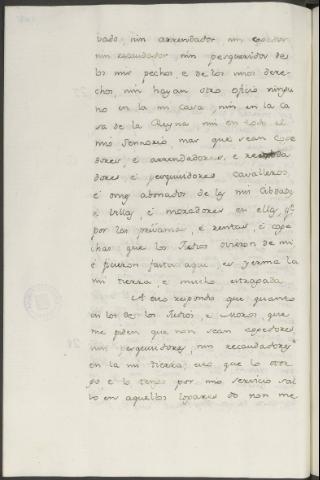 vado, nin arrendador nin cogedor
nin recaudador, nin pesqueridor de
los mis pechos, e de los mios dere-
chos, nin hayan otro oficio ningu
no en la mi casa, nin en la ca
sa de la Reyna, nin en todo el
mio Sennorio, mas que sean coge
dores, e arrendadores, e recabda
dores e pesquiridores cavalleros,
e omes abonados de las mi Cibdades
e Villas, e moradores en ellas, que
por las prisiones, e rentas, e coje
chas que los Judios ovieron de mi
e fueron fasta aqui, es yerma la
mi tierra e mucho estragada
A esto respondo que quanto
en los de los Judios, e Moros, que
me piden que non sean cogedores,
nin pesquiridores, nin recaudadores
en la mi tierra; esto que lo otor
go e lo tengo por mio servicio sal
vo en aquellos logares do non me